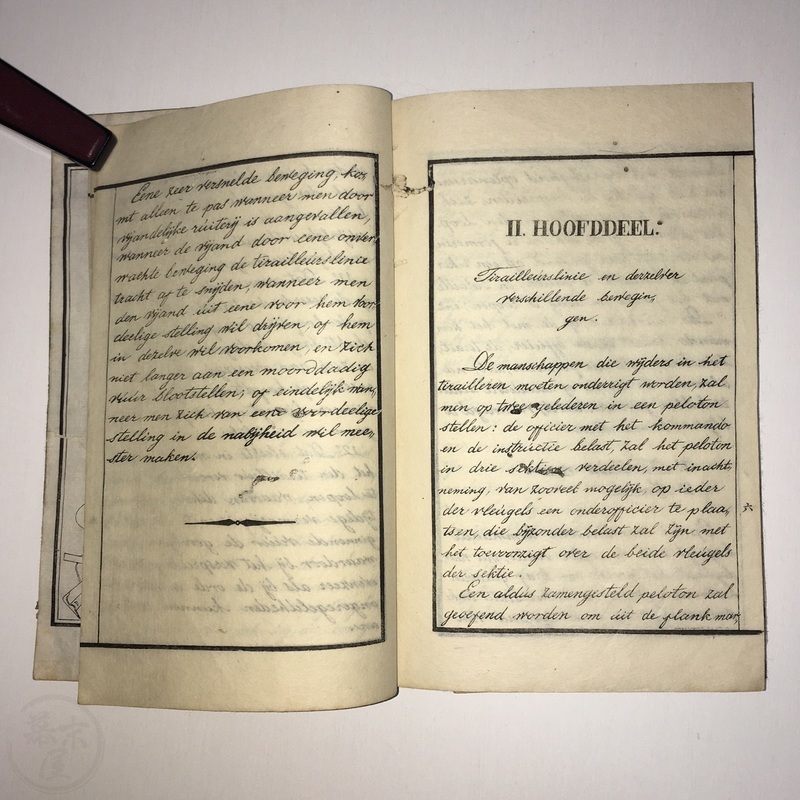 Eene zeer versnelde beweging, ko-
mt alleen te pas wanneer men door
vijandelijke ruiterij is aangevallen,
wanneer de vijand door eene onver-
wachte beweging de tirailleurslinie
tracht af te snijden, wanneer men
den vijand uit eene voor hem voor-
deelige stelling wil drijven, of hem
in dezelve wil voorkomen, en zich
niet langer aan een moorddadig
vuur blootstellen; of eindelijk wan-
neer men zich van eene voordeelige
stelling in de nabijheid wil mee-
ster maken.
II. HOOFDDEEL.
Tirailleurslinie en derzelver
verschillende bewegin,
gen.
De manschappen die wijders in het
tirailleren moeten onderrigt worden, zal
men op twee gelederen in een peloton
stellen: de officier met het kommando
en de instructie belast, zal het peloton
in drie verdeelen, met inacht,
neming, van zooveel mogelijk op ieder
der vleugels een onderofficier te plaa,
tsen, die bijzonder belast zal zijn met
het toevoorzigt over de beide vleugels
der sektie.
Een aldus zamengesteld peloton zal
geoefend worden om uit de flank mar,
幕末屋